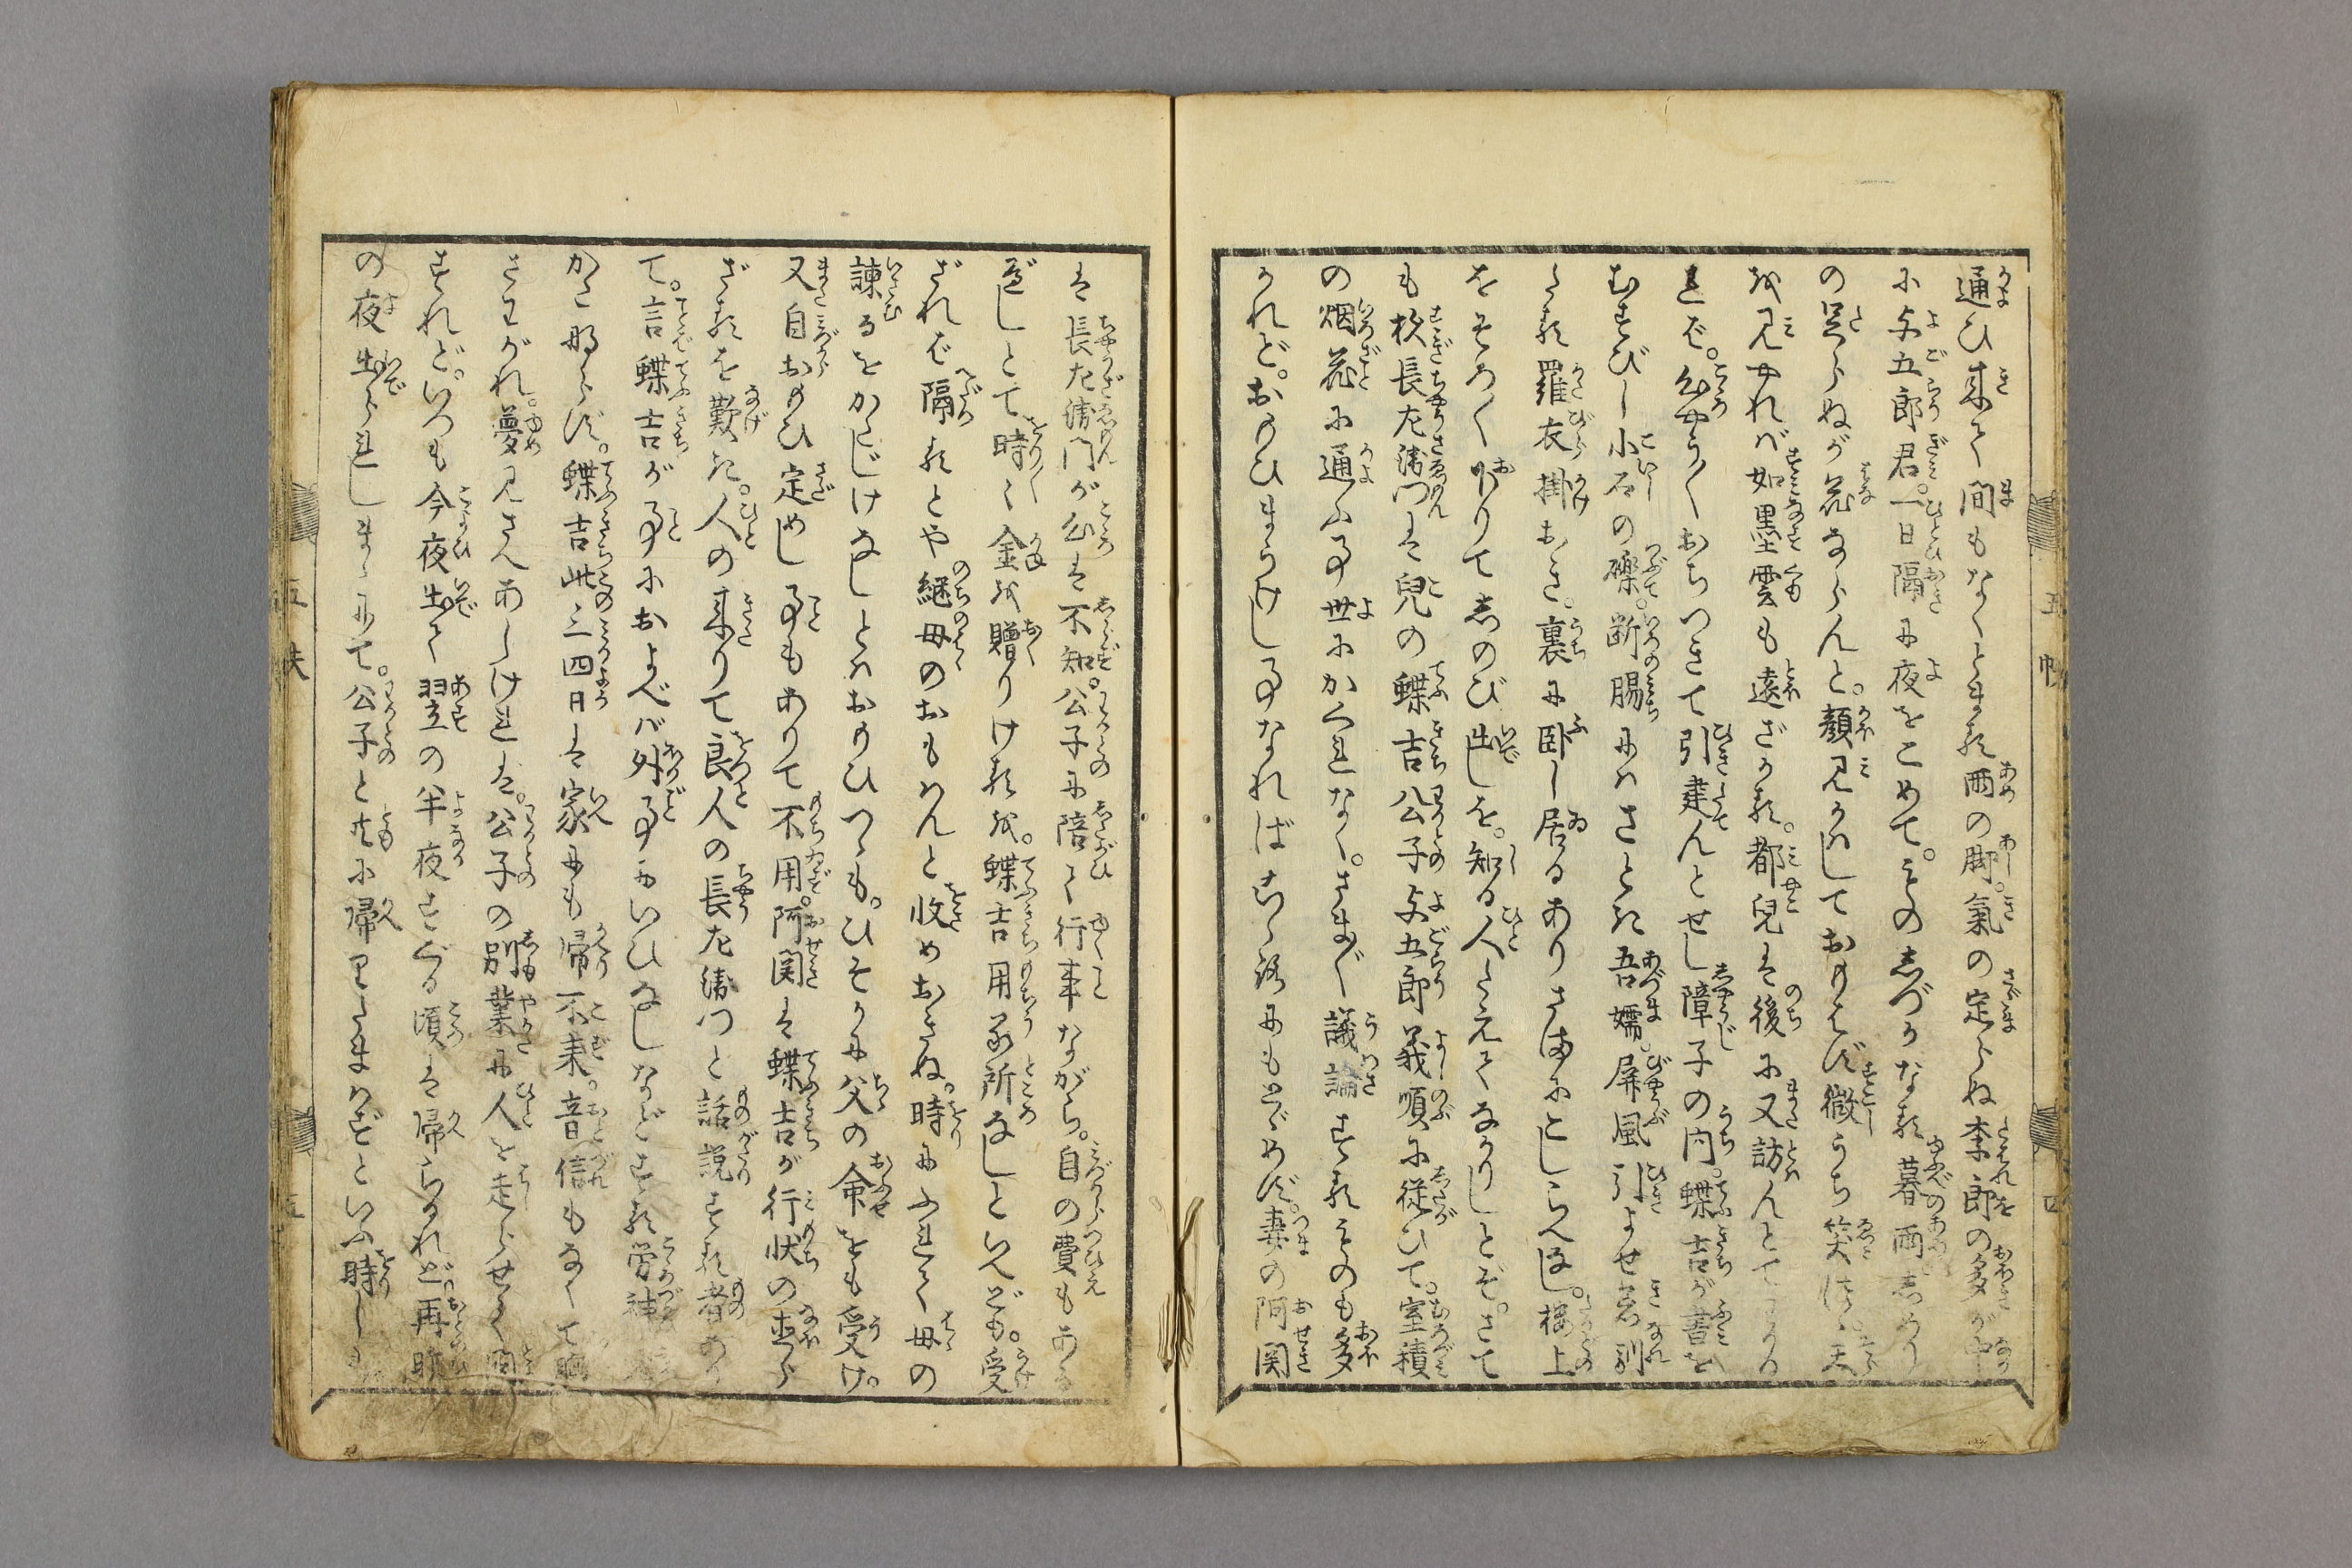 通ひ来て間もなくとまる雨の脚。氣の定らぬ李郎の多が中
に与五郎君。一日隔に夜をこめて。その志づかなる暮雨志めり
の足らぬが花ならんと。顔見かはしておもはず微うち笑
を見やれば如墨雲も遠ざかる。都兒は後に又訪んとて
れど。心やう〳〵おちつきて引建んとせし障子の内。蝶吉が書を
むすびし小石の礫。断腸にはさとき吾嬬。屏風引よせ着馴
たる羅衣掛おき。裏に臥し居るありさまにこしらへぬ。楼上
をそろ〳〵下りて志のび出しを。知る人たえてなかりしとぞ。さて
も杉長左衛門は兒の蝶吉公子与五郎義順に従ひて。室積
の烟花に通ふ事世にかくれなく。さま〴〵議論するものも多
かれど。おもひまうけし事なればこゝろにもとゞめず。妻の阿関
は長左衛門が心は不知。公子に陪て行事ながら。自の費もある
べしとて時々金を贈りけるを。蝶吉用る所なしといへども。受
ざれば隔るとや継母のおもはんと收めおきぬ。時にふれて母の
諫るをかたじけなしとはおもひつゝも。ひそかに父の命をも受け。
又自おもひ定めし事もありて不用。阿関は蝶吉が行状の直ら
ざるを歎き。人の来りて良人の長左衛門と話説する者あり
て。言蝶吉が事におよべば外事にいひなしなどする労神
かた那らず。蝶吉此三四日は家にも帰不来。音信もなくて
さすがれ。夢見さへあしければ。公子の別業に人を走らせて
すれど。いつも今夜出て翌の半夜すぐる頃は帰らるれど。再昨
の夜出られしまゝにて。公子とともに帰りたまはずといふ時しも
五 帙
四
五 帙
五